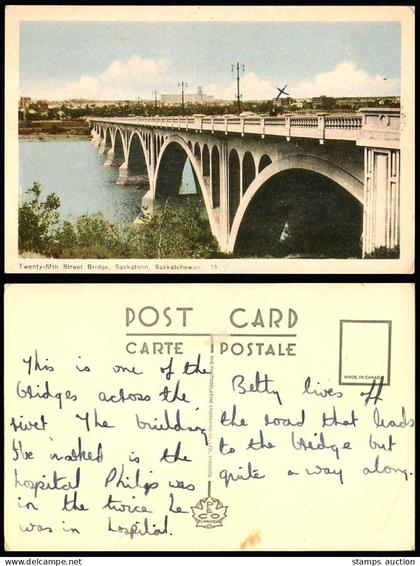 Twenty-fifth Street Bridge, Saskatoon, Saskatchewan. 19
POST CARD
CARTE POSTALE
MADE IN CANADA
This is one of the
bridges across the
river The building
I've marked is the
hospital Philip was
in the twice he
was in hospital.
THE PHOTOGELATINE ENGRAVING CO., LTD., TORONTO
PECO
CANADA
Betty lives off
the road that leads
to the bridge but
quite a way along.
stamps auction